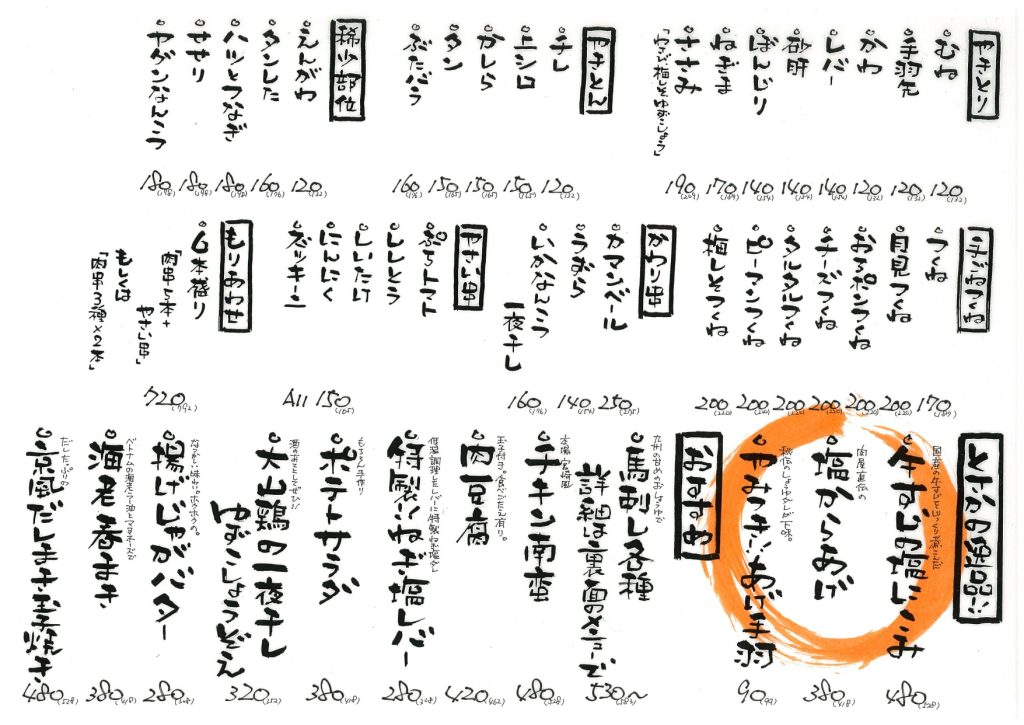 やきとり
○むね 120(132)
○手羽先 120(132)
○かわ 120(132)
○レバー 140(154)
○砂肝 140(154)
○ぼんじり 140(154)
○ねぎま 170(187)
○ささみ 190(209)
「わさび、梅しそ、ゆずこしょう」
やきとん
○チレ 120(132)
○上シロ 150(165)
○かしら 150(165)
○タン 150(165)
○ぶたバラ 160(176)
稀少部位
○えんがわ 120(132)
○タンした 160(176)
○ハツとつなぎ 180(198)
○せせり 180(198)
○ヤゲンなんこつ 180(198)
手ごねつくね
○つくね 170(187)
○月見つくね 200(220)
○おろポンつくね 200(220)
○チーズつくね 200(220)
○タルタルつくね 200(220)
○ピーマンつくね 200(220)
○梅しそつくね 200(220)
かわり串
○カマンベール 250(275)
○うずら 140(154)
○いかなんこつ一夜干し 160(176)
やさい串
○ぷちトマト
○ししとう
○しいたけ
○にんにく
○ズッキーニ
All 150(165)
もりあわせ
○6本盛り 720(792)
「肉串5本+
やさい串」
もしくは
「肉串3種×2本」
とさかの絶品!!
国産の牛すじをじっくり煮こみ
○牛すじの塩にこみ 480(528)
肉屋直伝の
○塩からあげ 380(418)
秘伝のしょうゆダレが下味。
○やみつき!!あげ手羽 90(99)
おすすめ
九州の甘めのおしょうゆで
○馬刺し各種
詳細は裏面のメニューで 530〜(583)
本場宮崎風
○チキン南蛮 480(528)
玉子付き。食べごたえ有り。
○肉豆腐 420(462)
低温調理したレバーに特製ねぎ塩ダレ
○特製!!ねぎ塩レバー 280(308)
もちろん手作り
○ポテトサラダ 380(418)
酒のおともにぜひ!!
○大山鶏の一夜干し
ゆずこしょうぞえ 320(352)
なつかしい味付け。ホクホクの。
○揚げじゃがバター 280(308)
ベトナムの海老。ラー油とマヨネーズで
○海老春まき 380(418)
だしたっぷりの
○京風だしまき玉子焼き 480(528)